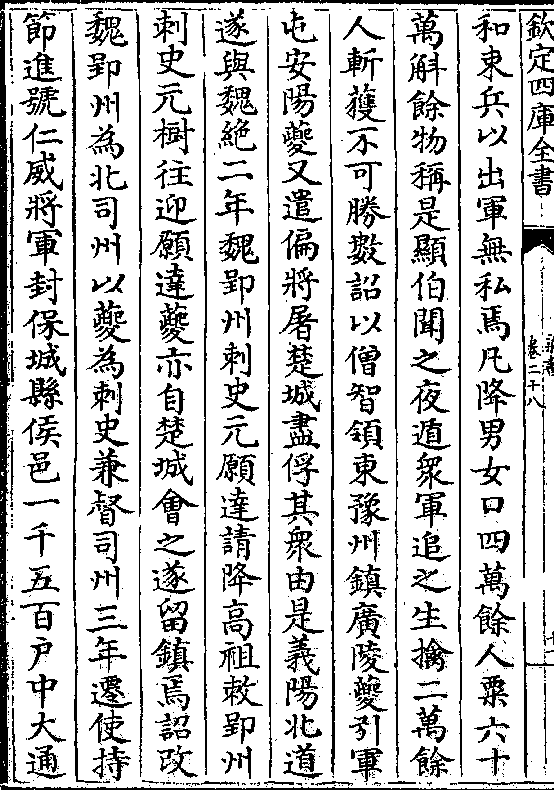 欽定四庫全書
卷二十八
和東兵以出軍無私焉凡降男女口四萬餘人粟六十
萬斛餘物稱是顯伯聞之夜遁衆軍追之生擒二萬餘
人斬獲不可勝數詔以僧智領東豫州鎮廣陵夔引軍
屯安陽夔又遣偏將屠楚城盡俘其衆由是義陽北道
遂與魏絶二年魏郢州刺史元願達請降高祖敕郢州
刺史元樹往迎願達夔亦自楚城會之遂留鎮焉詔改
魏郢州為北司州以夔為刺史兼督司州三年遷使持
節進號仁威將軍封保城縣侯邑一千五百户中大通